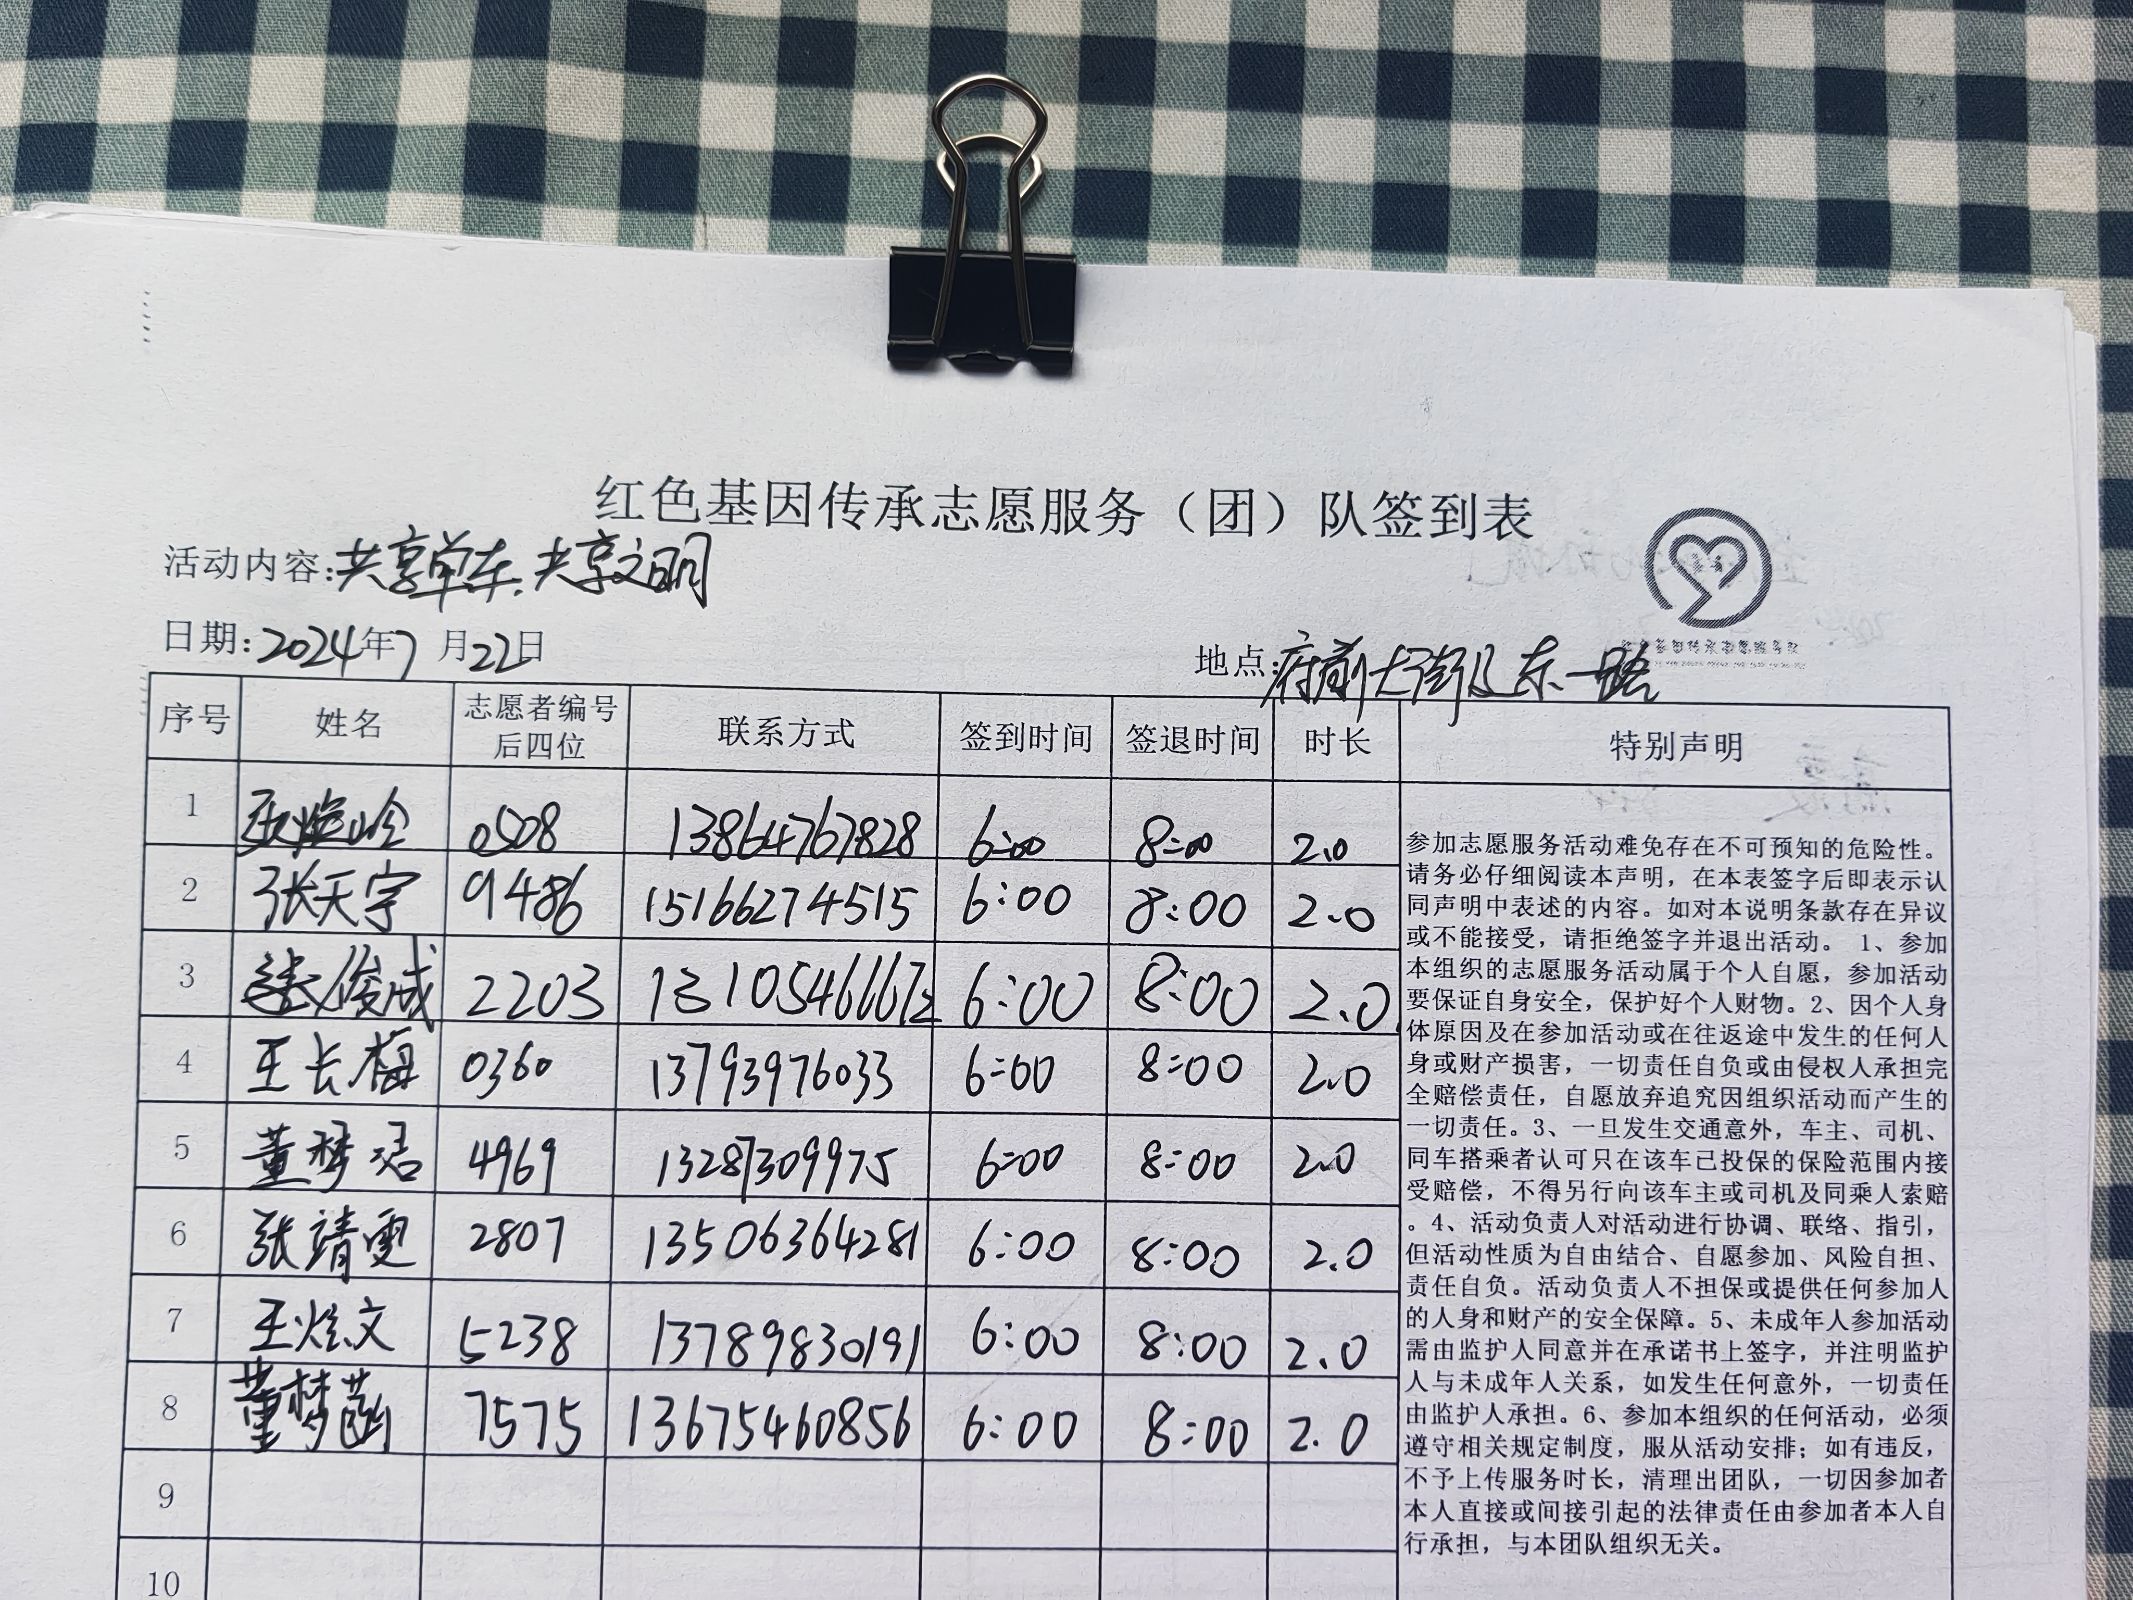 红色基因传承志愿服务（团）队签到表
活动内容:共享单车、共享文明
日期:2024年7月22日
地点:府前大街及东一路
序号 姓名 志愿者编号后四位 联系方式 签到时间 签退时间 时长 特别声明
1 0508 13864767828 6:00 8:00 2.0
2 张天宇 9486 15166274515 6:00 8:00 2.0
3 俊成 2203 6:00 8:00 2.0
4 王长梅 0360 13793976033 6:00 8:00 2.0
5 董梦君 4969 13287309975 6:00 8:00 2.0
6 张靖雯 2807 13506364281 6:00 8:00 2.0
7 王炫文 5238 13789830191 6:00 8:00 2.0
8 董梦菡 7575 13675460856 6:00 8:00 2.0
9
10
参加志愿服务活动难免存在不可预知的危险性。
请务必仔细阅读本声明，在本表签字后即表示认
同声明中表述的内容。如对本说明条款存在异议
或不能接受，请拒绝签字并退出活动。 1、参加
本组织的志愿服务活动属于个人自愿，参加活动
要保证自身安全，保护好个人财物。2、因个人身
体原因及在参加活动或在往返途中发生的任何人
身或财产损害，一切责任自负或由侵权人承担完
全赔偿责任，自愿放弃追究因组织活动而产生的
一切责任。3、一旦发生交通意外，车主、司机、
同车搭乘者认可只在该车已投保的保险范围内接
受赔偿，不得另行向该车主或司机及同乘人索赔
。4、活动负责人对活动进行协调、联络、指引，
但活动性质为自由结合、自愿参加、风险自担、
责任自负。活动负责人不担保或提供任何参加人
的人身和财产的安全保障。5、未成年人参加活动
需由监护人同意并在承诺书上签字，并注明监护
人与未成年人关系，如发生任何意外，一切责任
由监护人承担。6、参加本组织的任何活动，必须
遵守相关规定制度，服从活动安排；如有违反，
不予上传服务时长，清理出团队，一切因参加者
本人直接或间接引起的法律责任由参加者本人自
行承担，与本团队组织无关。